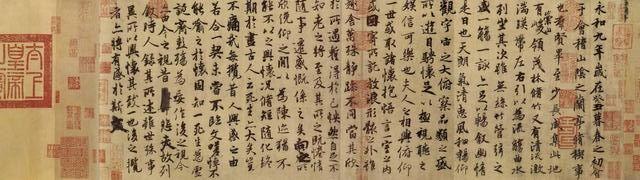 永和九年歲在癸丑暮春之初會
于會稽山陰之蘭亭脩稧事
也群賢畢至少長咸集此地
有崇山峻領茂林脩竹又有清流激
湍暎帶左右引以為流觴曲水
列坐其次雖無絲竹管弦之
盛一觴一詠亦足以暢敘幽情
是日也天朗氣清惠風和暢仰
觀宇宙之大俯察品類之盛
所以遊目騁懷足以極視聽之
娛信可樂也夫人之相與俯仰
一世或取諸懷抱悟言一室之內
或因寄所託放浪形骸之外雖
趣舍萬殊靜躁不同當其欣
於所遇蹔得於己怏然自足不
知老之將至及其所之既惓情
隨事遷感慨係之矣向之所
欣俛仰之間以為陳迹猶不
能不以之興懷況脩短隨化終
期於盡古人云死生亦大矣豈
不痛哉每攬昔人興感之由
若合一契未嘗不臨文嗟悼不
能喻之於懷固知一死生為虛
誕齊彭殤為妄作後之視今
亦由今之視昔悲夫故列
敘時人錄其所述雖世殊事
異所以興懷其致一也後之攬
者亦將有感於斯文
太上
皇帝